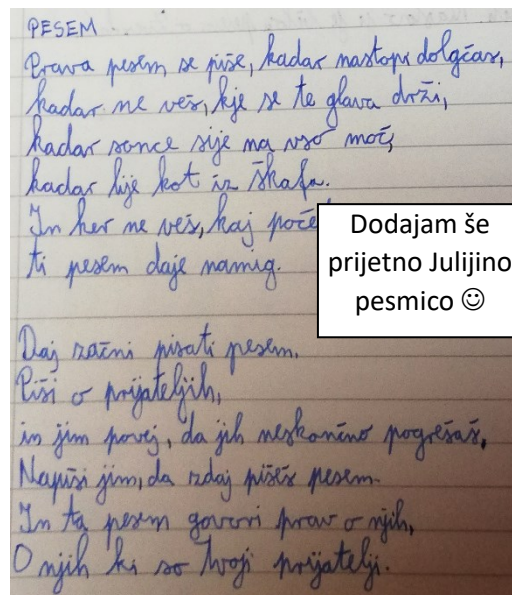 PESEM
Prava pesem se piše, kadar nastopi dolgčas,
kadar ne veš, kje se te glava drži,
kadar sonce sije na vso moč,
kadar lije kot iz škafa.
In ker ne veš, kaj
ti pesem daje namig.
Dodajam še
prijetno Julijino
pesmico ☺
Daj začni pisati pesem.
Piši o prijateljih,
in jim povej, da jih neskončno pogrešaš,
Napiši jim, da zdaj pišeš pesem.
In ta pesem govori prav o njih,
O njih ki so tvoji prijatelji.